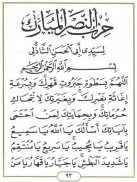 حزب النصر المبارك
لسيدي أبي الحسن الشاذلي
بسم الله الرحمن الرحيم
اللهم بسطوة جبروت قهرك وبسرعة
إغاثة نصرك وبغيرتك لانتهاك
حرماتك وبحمايتك لمن احتمى
بآياتك أسألك يا الله يا سميع
يا قريب يا مجيب يا سريع يا منتقم
يا شديد البطش يا جبار يا قهار يا من
٩٣